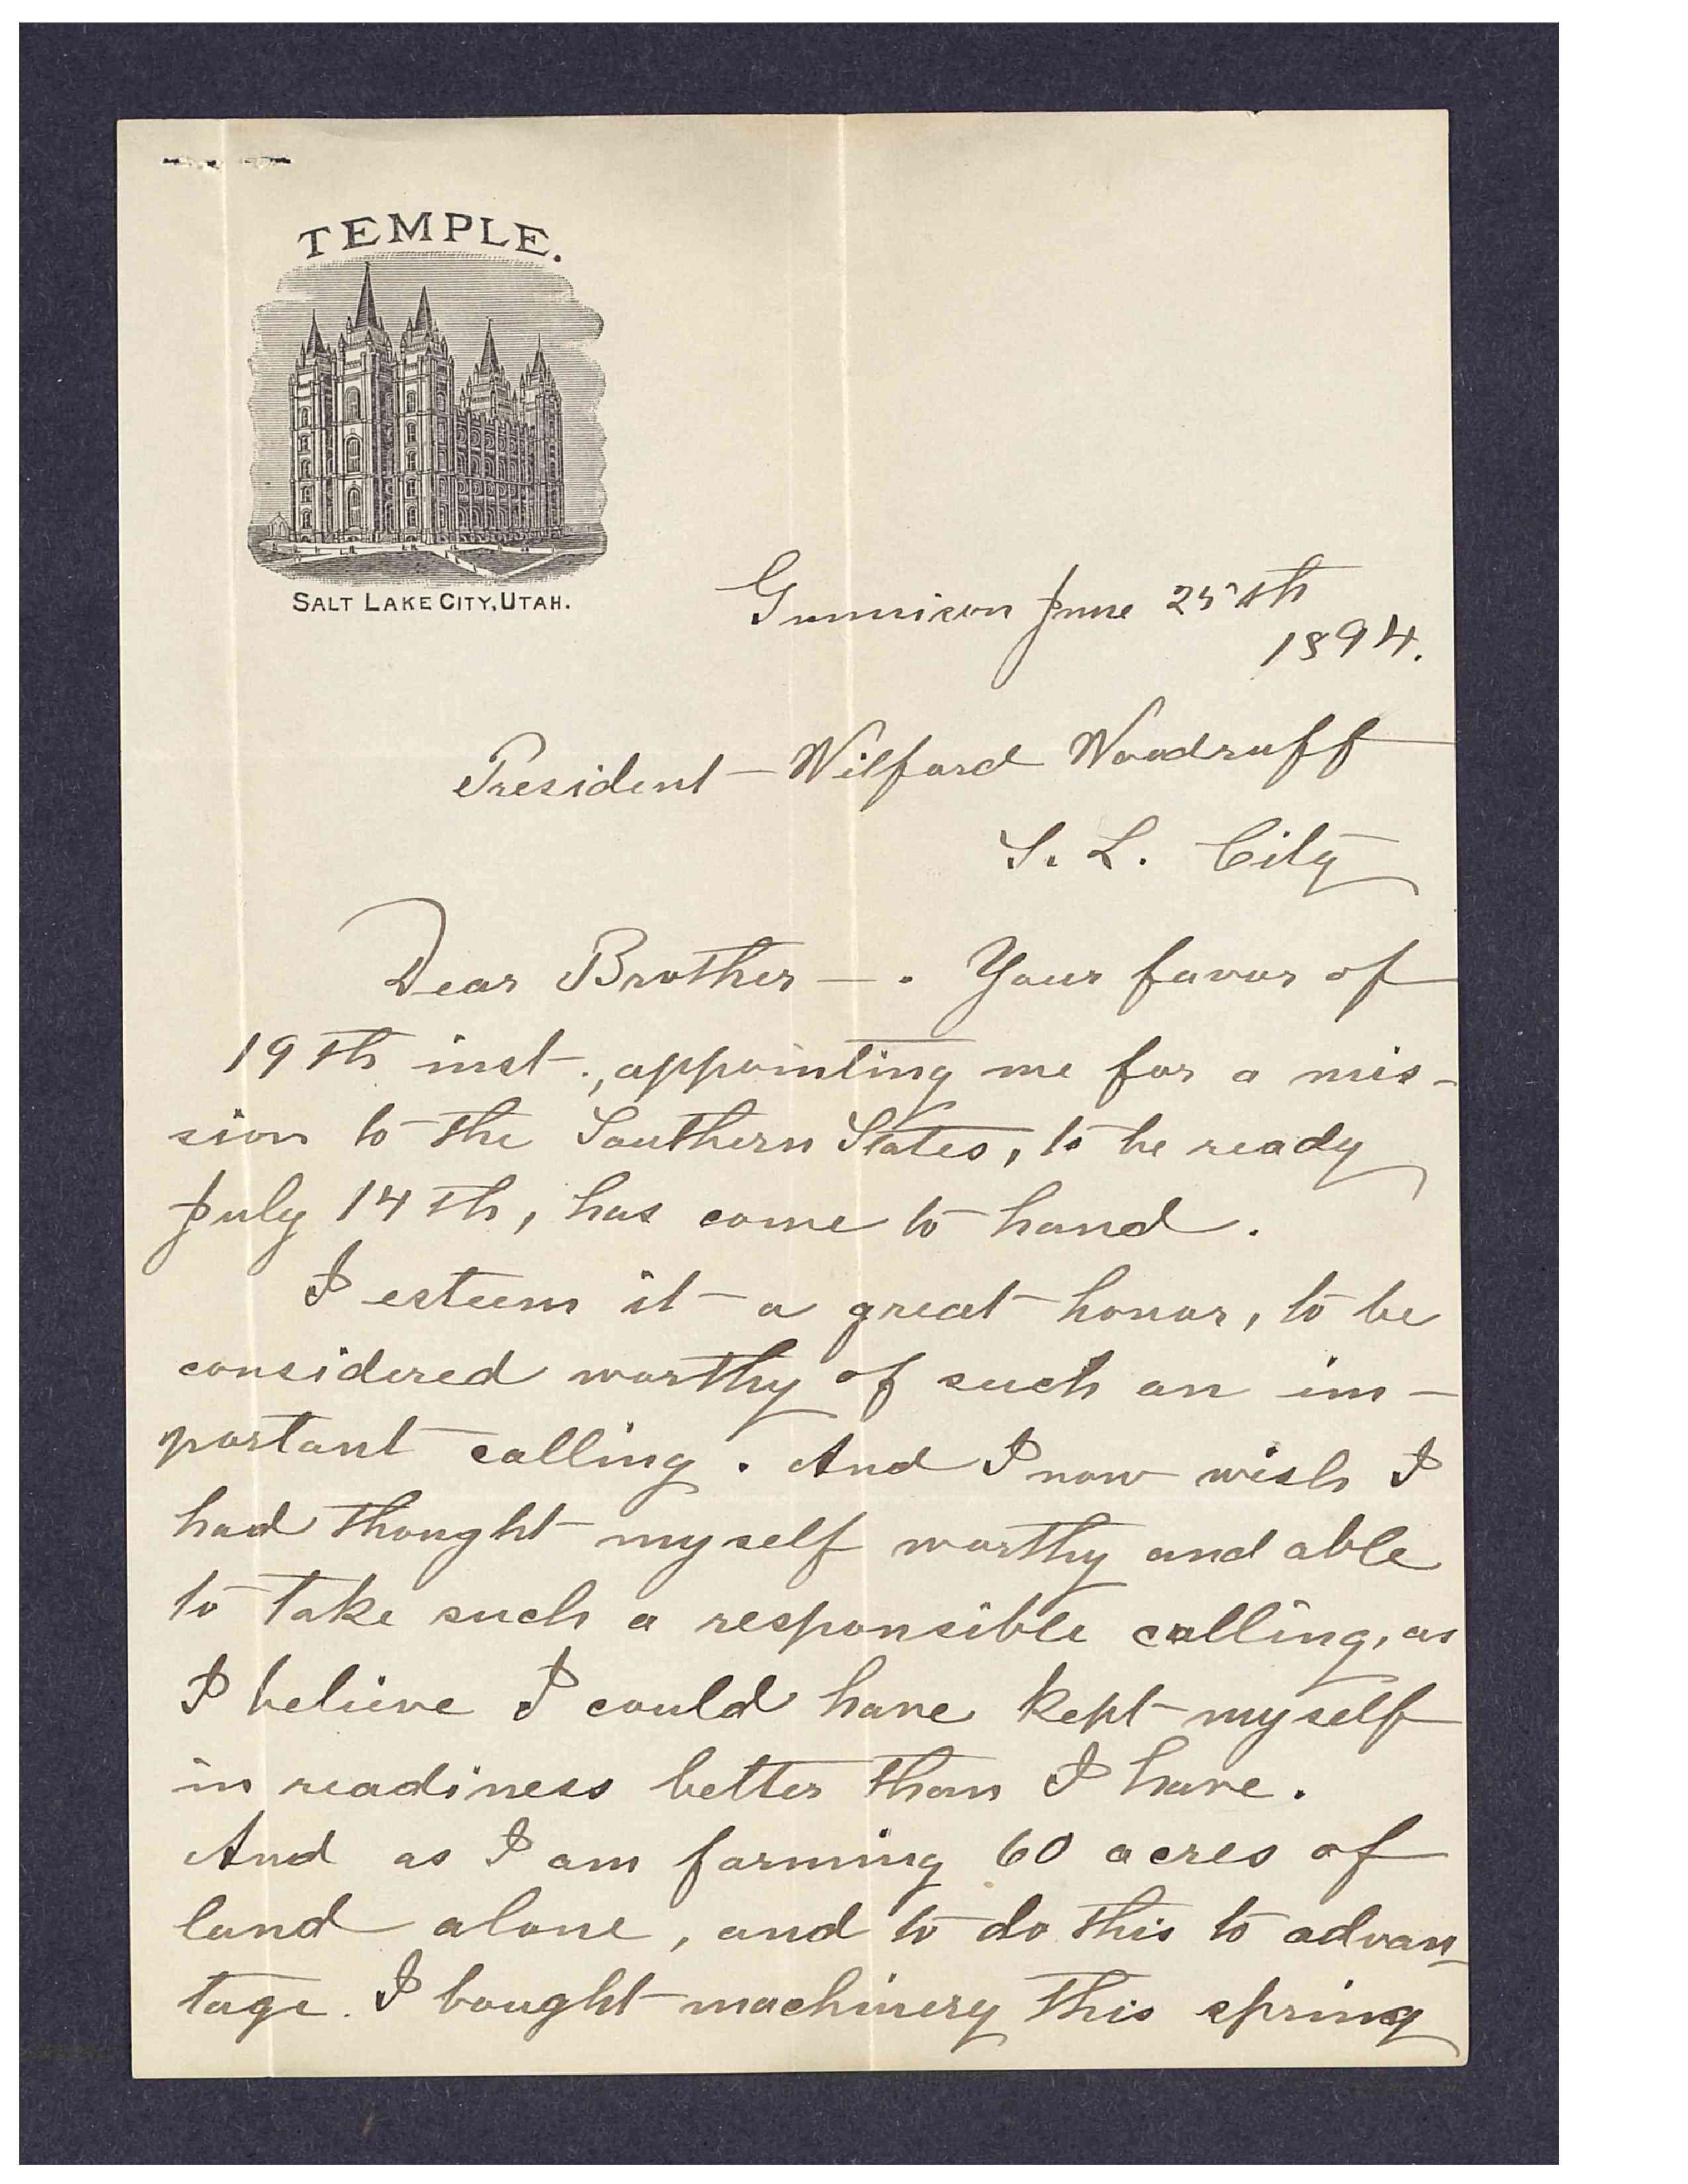 TEMPLE.
SALT LAKE CITY, UTAH.
Gunnison June 25th
1894.
President Wilford Woodruff
S. L. City
Dear Brother —. Your favor of
19th inst., appointing me for a mis-
sion to the Southern States, to be ready
July 14th, has come to hand.
I esteem it a great honor, to be
considered worthy of such an im-
portant calling. And I now wish I
had thought myself worthy and able
to take such a responsible calling, as
I believe I could have kept myself
in readiness better than I have.
And as I am farming 60 acres of
land alone, and to do this to advan-
tage. I bought machinery this spring